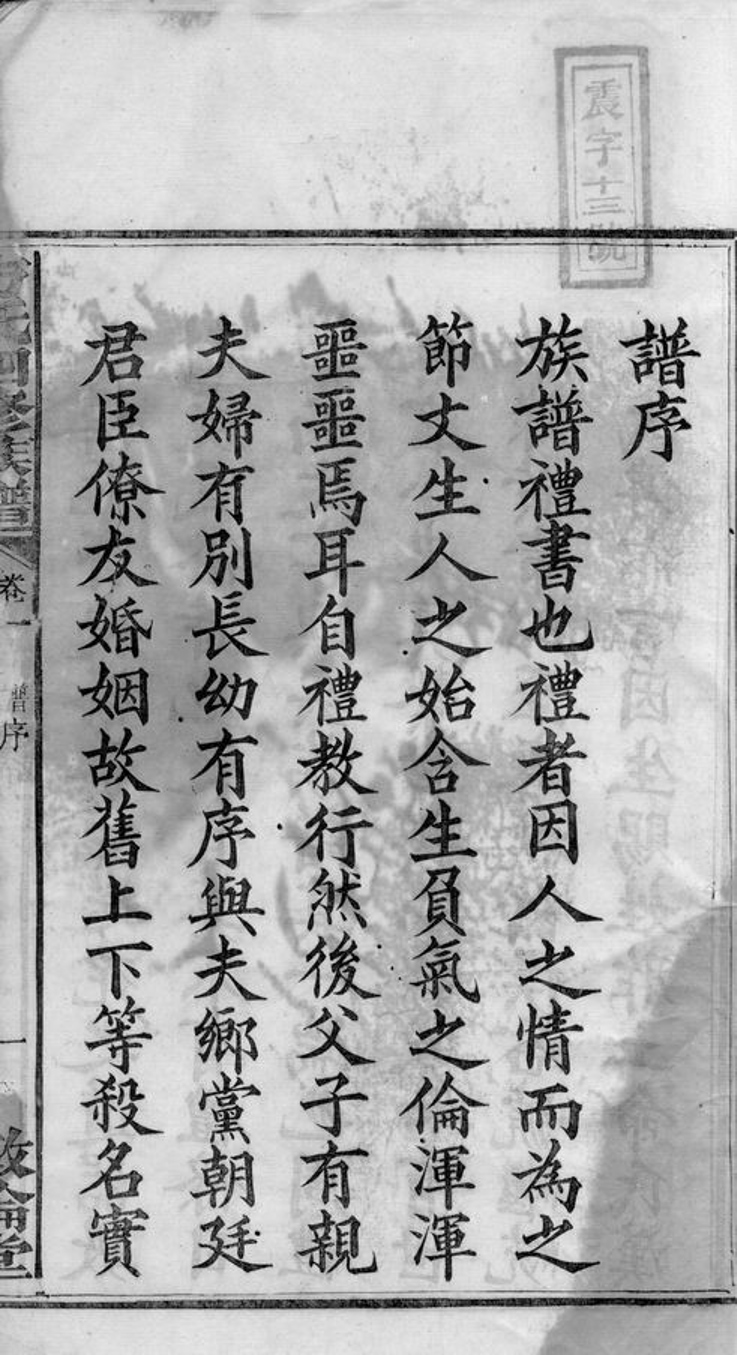 震字十三號
譜序
族譜禮書也禮者因人之情而為之
節文生人之始含生負氣之倫渾渾
噩噩焉耳自禮教行然後父子有親
夫婦有別長幼有序與夫鄉黨朝廷
君臣僚友婚姻故舊上下等殺名實
氏四修族譜
卷一
譜序
一
敦倫堂